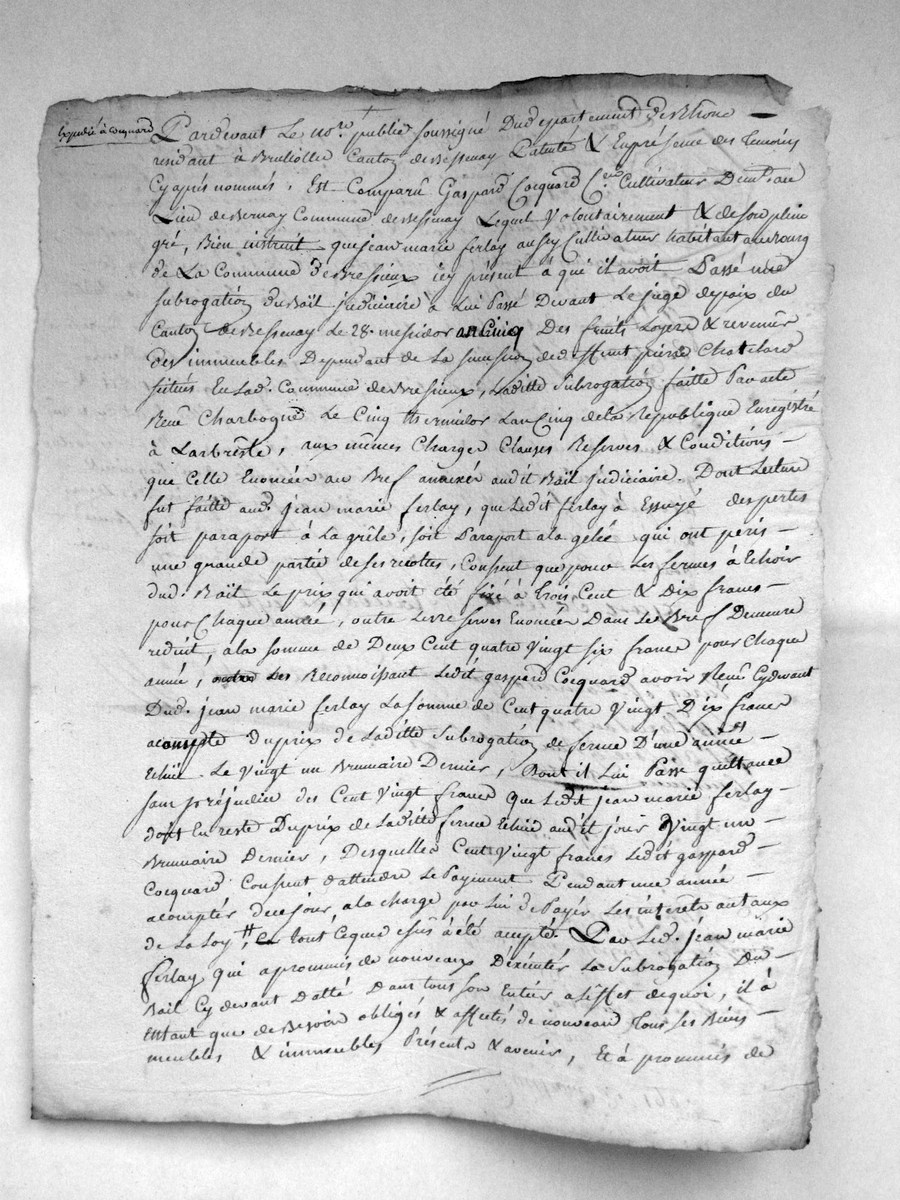 Expédié à Cocquard
Pardevant Le no.re public soussigné Dud epartement du Rhone
residant à Brullolle Canton de Bessenay Patenté & En présence des Temoins
Cy apiès nommés, Est Comparû Gaspard Cocquard C.en Cultivateur Dem.t au
Lieu de Bernay Commune de Bessenay Lequel Volontairement & de son plein
gré, Bien instruit que jean marie ferlay aussy Cultivateur habitant au Bourg
de La Commune de Bressieux icy présent à qui il avoit Passé une
subrogation du Bail judiciaire à Lui Passé Devant Le juge de paix du
Canton de Bessenay Le 28. messidor an Cinq Des fruits Loyers & revenus
des immeubles Dependant de La succession de deffunt pierre Chatelard
situés En Lad. Commune de Bressieux, Laditte Subrogation faitte Par acte
Reçu Charbogne Le Cinq thermidor L'an Cinq de la Republique Enregistré
à Larbresle, aux mêmes Charges Clauses Reserves & Conditions -
que Celle Enoncées au Bref annexé audit Bail judiciaire. Dont Lecture
fut faitte aud. jean marie ferlay, que Ledit ferlay à Essuyé des pertes
soit paraport à La grêle, soit Paraport a la gelée qui ont péris -
une grande partie de ses recoltes, Consent que pour Les fermes à Echoir
dud. Bail Le prix qui avoit été fixé à trois Cent & Dix francs -
pour Chaque année, outre Les reserves Enoncées Dans Le Bref Demeure
reduit, à la somme de Deux Cent quatre Vingt six francs pour Chaque
année, Reconnoissant Ledit gaspard Cocquard avoir Reçu Cydevant
Dud. jean marie ferlay La somme de Cent quatre Vingt Dix francs
acompte du prix de Laditte Subrogation de ferme D'une année
Echüe Le Vingt un Brumaire Dernier, Dont il Lui Passe quittance
sans préjudice des Cent Vingt francs que Ledit jean marie ferlay -
doit En reste Du prix de Laditte ferme Echüe audit jour Vingt un -
Brumaire Dernier, Desquelles Cent Vingt francs Ledit gaspard -
Cocquard Consent d'attendre Le Payement Pendant une année -
acomptés de ce jour, a la charge par Lui de Payer Les interets au taux
de La Loy, Ce tout Ceque dessus à été accepté. Par Led. jean marie
ferlay qui a prommis de nouveaux D'exécuter La Subrogation Du -
Bail Cy devant datté Dans tous son Entier a L'effet de quoi, il à
Entant que de Besoin obligés & affectés de nouveau Tous ses Biens -
meubles & immeubles Présents & avenir, Et à prommis de